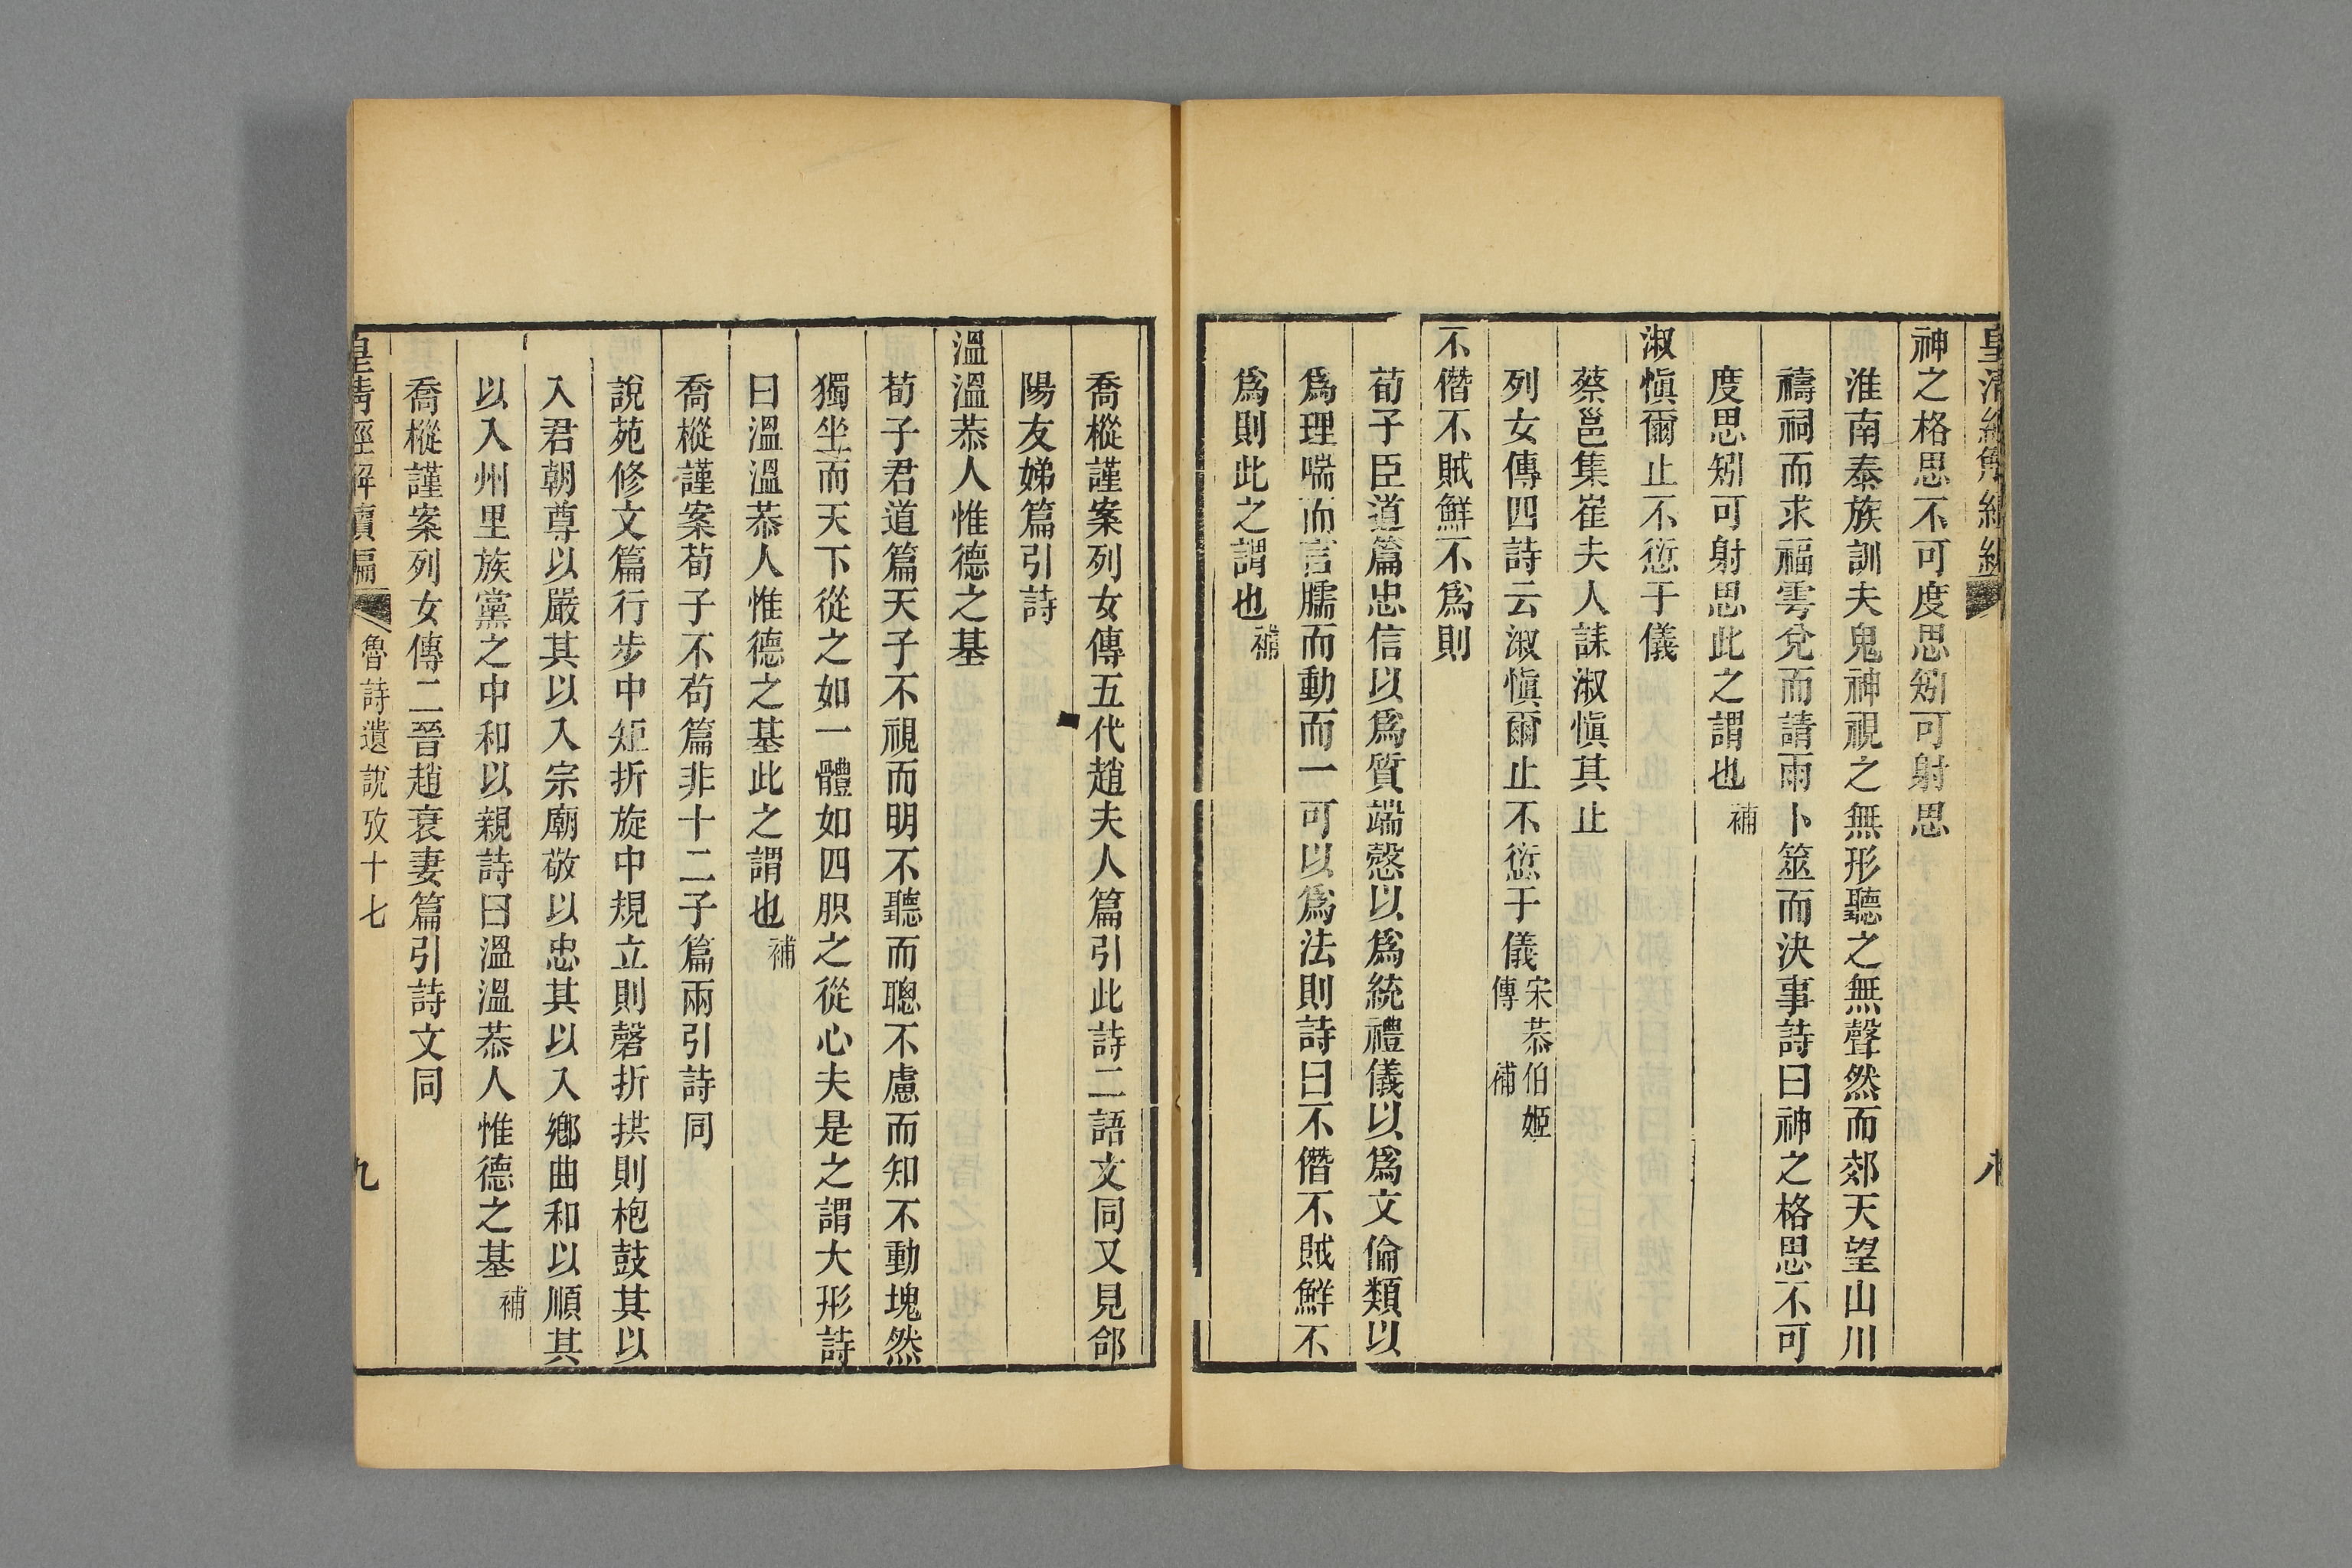 神之格思不可度思矧可射思
淮南泰族訓夫鬼神視之無形聽之無聲然而郊天望山川
禱祠而求福雩兌而請雨卜筮而決事詩曰神之格思不可
度思矧可射思此之謂也補
淑慎爾止不愆于儀
蔡邕集崔夫人誄淑慎其止
列女傳四詩云淑慎爾止不愆于儀宋恭伯姬傳補
不僭不賊鮮不爲則
荀子臣道篇忠信以爲質端慤以爲統禮儀以爲文倫類以
爲理喘而言臑而動而一可以爲法則詩曰不僭不賊鮮不
爲則此之謂也補
喬樅謹案列女傳五代趙夫人篇引此詩二語文同又見郃
陽友娣篇引詩
溫溫恭人惟德之基
荀子君道篇天子不視而明不聽而聰不慮而知不動塊然
獨坐而天下從之如一體如四胑之從心夫是之謂大形詩
曰溫溫恭人惟德之基此之謂也補
喬樅謹案荀子不苟篇非十二子篇兩引詩同
說苑修文篇行步中矩折旋中規立則磬折拱則枹鼓其以
入君朝尊以嚴其以入宗廟敬以忠其以入鄉曲和以順其
以入州里族黨之中和以親詩曰溫溫恭人惟德之基補
喬樅謹案列女傳二晉趙衰妻篇引詩文同
皇清經解續編 魯詩遺說攷十七 九